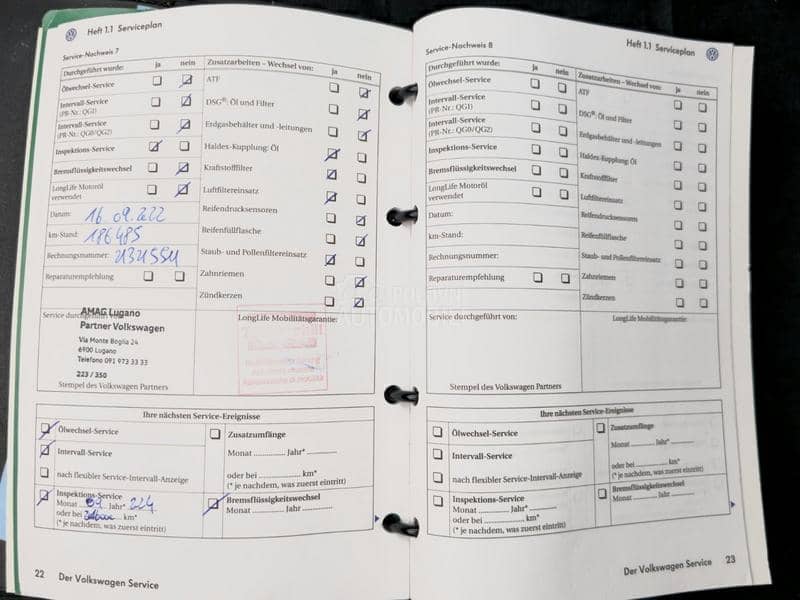 Heft 1.1 Serviceplan
Service-Nachweis 7
Durchgeführt wurde: ja nein
Ölwechsel-Service
Intervall-Service
(PR-Nr.: QG1)
Intervall-Service
(PR-Nr.: QG0/QG2)
Inspektions-Service
Bremsflüssigkeitswechsel
LongLife Motoröl
verwendet
Datum: 16.09.222
km-Stand: 186485
Rechnungsnummer:
Reparaturempfehlung
Zusatzarbeiten – Wechsel von: ja nein
ATF
DSG®: Öl und Filter
Erdgasbehälter und -leitungen
Haldex-Kupplung: Öl
Kraftstofffilter
Luftfiltereinsatz
Reifendrucksensoren
Reifenfüllflasche
Staub- und Pollenfiltereinsatz
Zahnriemen
Zündkerzen
Service durchgeführt von:
AMAG Lugano
Partner Volkswagen
Via Monte Boglia 24
6900 Lugano
Telefono 091 973 33 33
223 / 350
Stempel des Volkswagen Partners
LongLife Mobilitätsgarantie:
POLOVNI
AUTOMOBILI
Ihre nächsten Service-Ereignisse
Ölwechsel-Service
Intervall-Service
nach flexibler Service-Intervall-Anzeige
Inspektions-Service
Monat 09 Jahr* 224
oder bei km*
(* je nachdem, was zuerst eintritt)
Zusatzumfänge
Monat ............ Jahr* ............
oder bei ............ km*
(* je nachdem, was zuerst eintritt)
Bremsflüssigkeitswechsel
Monat ............ Jahr ............
22 Der Volkswagen Service
Heft 1.1 Serviceplan
Service-Nachweis 8
Durchgeführt wurde: ja nein
Ölwechsel-Service
Intervall-Service
(PR-Nr.: QG1)
Intervall-Service
(PR-Nr.: QG0/QG2)
Inspektions-Service
Bremsflüssigkeitswechsel
LongLife Motoröl
verwendet
Datum:
km-Stand:
Rechnungsnummer:
Reparaturempfehlung
Zusatzarbeiten – Wechsel von: ja nein
ATF
DSG®: Öl und Filter
Erdgasbehälter und -leitungen
Haldex-Kupplung: Öl
Kraftstofffilter
Luftfiltereinsatz
Reifendrucksensoren
Reifenfüllflasche
Staub- und Pollenfiltereinsatz
Zahnriemen
Zündkerzen
Service durchgeführt von:
LongLife Mobilitätsgarantie:
Stempel des Volkswagen Partners
Ihre nächsten Service-Ereignisse
Ölwechsel-Service
Intervall-Service
nach flexibler Service-Intervall-Anzeige
Inspektions-Service
Monat ............ Jahr* ............
oder bei ............ km*
(* je nachdem, was zuerst eintritt)
Zusatzumfänge
Monat ............ Jahr* ............
oder bei ............ km*
(* je nachdem, was zuerst eintritt)
Bremsflüssigkeitswechsel
Monat ............ Jahr ............
Der Volkswagen Service 23